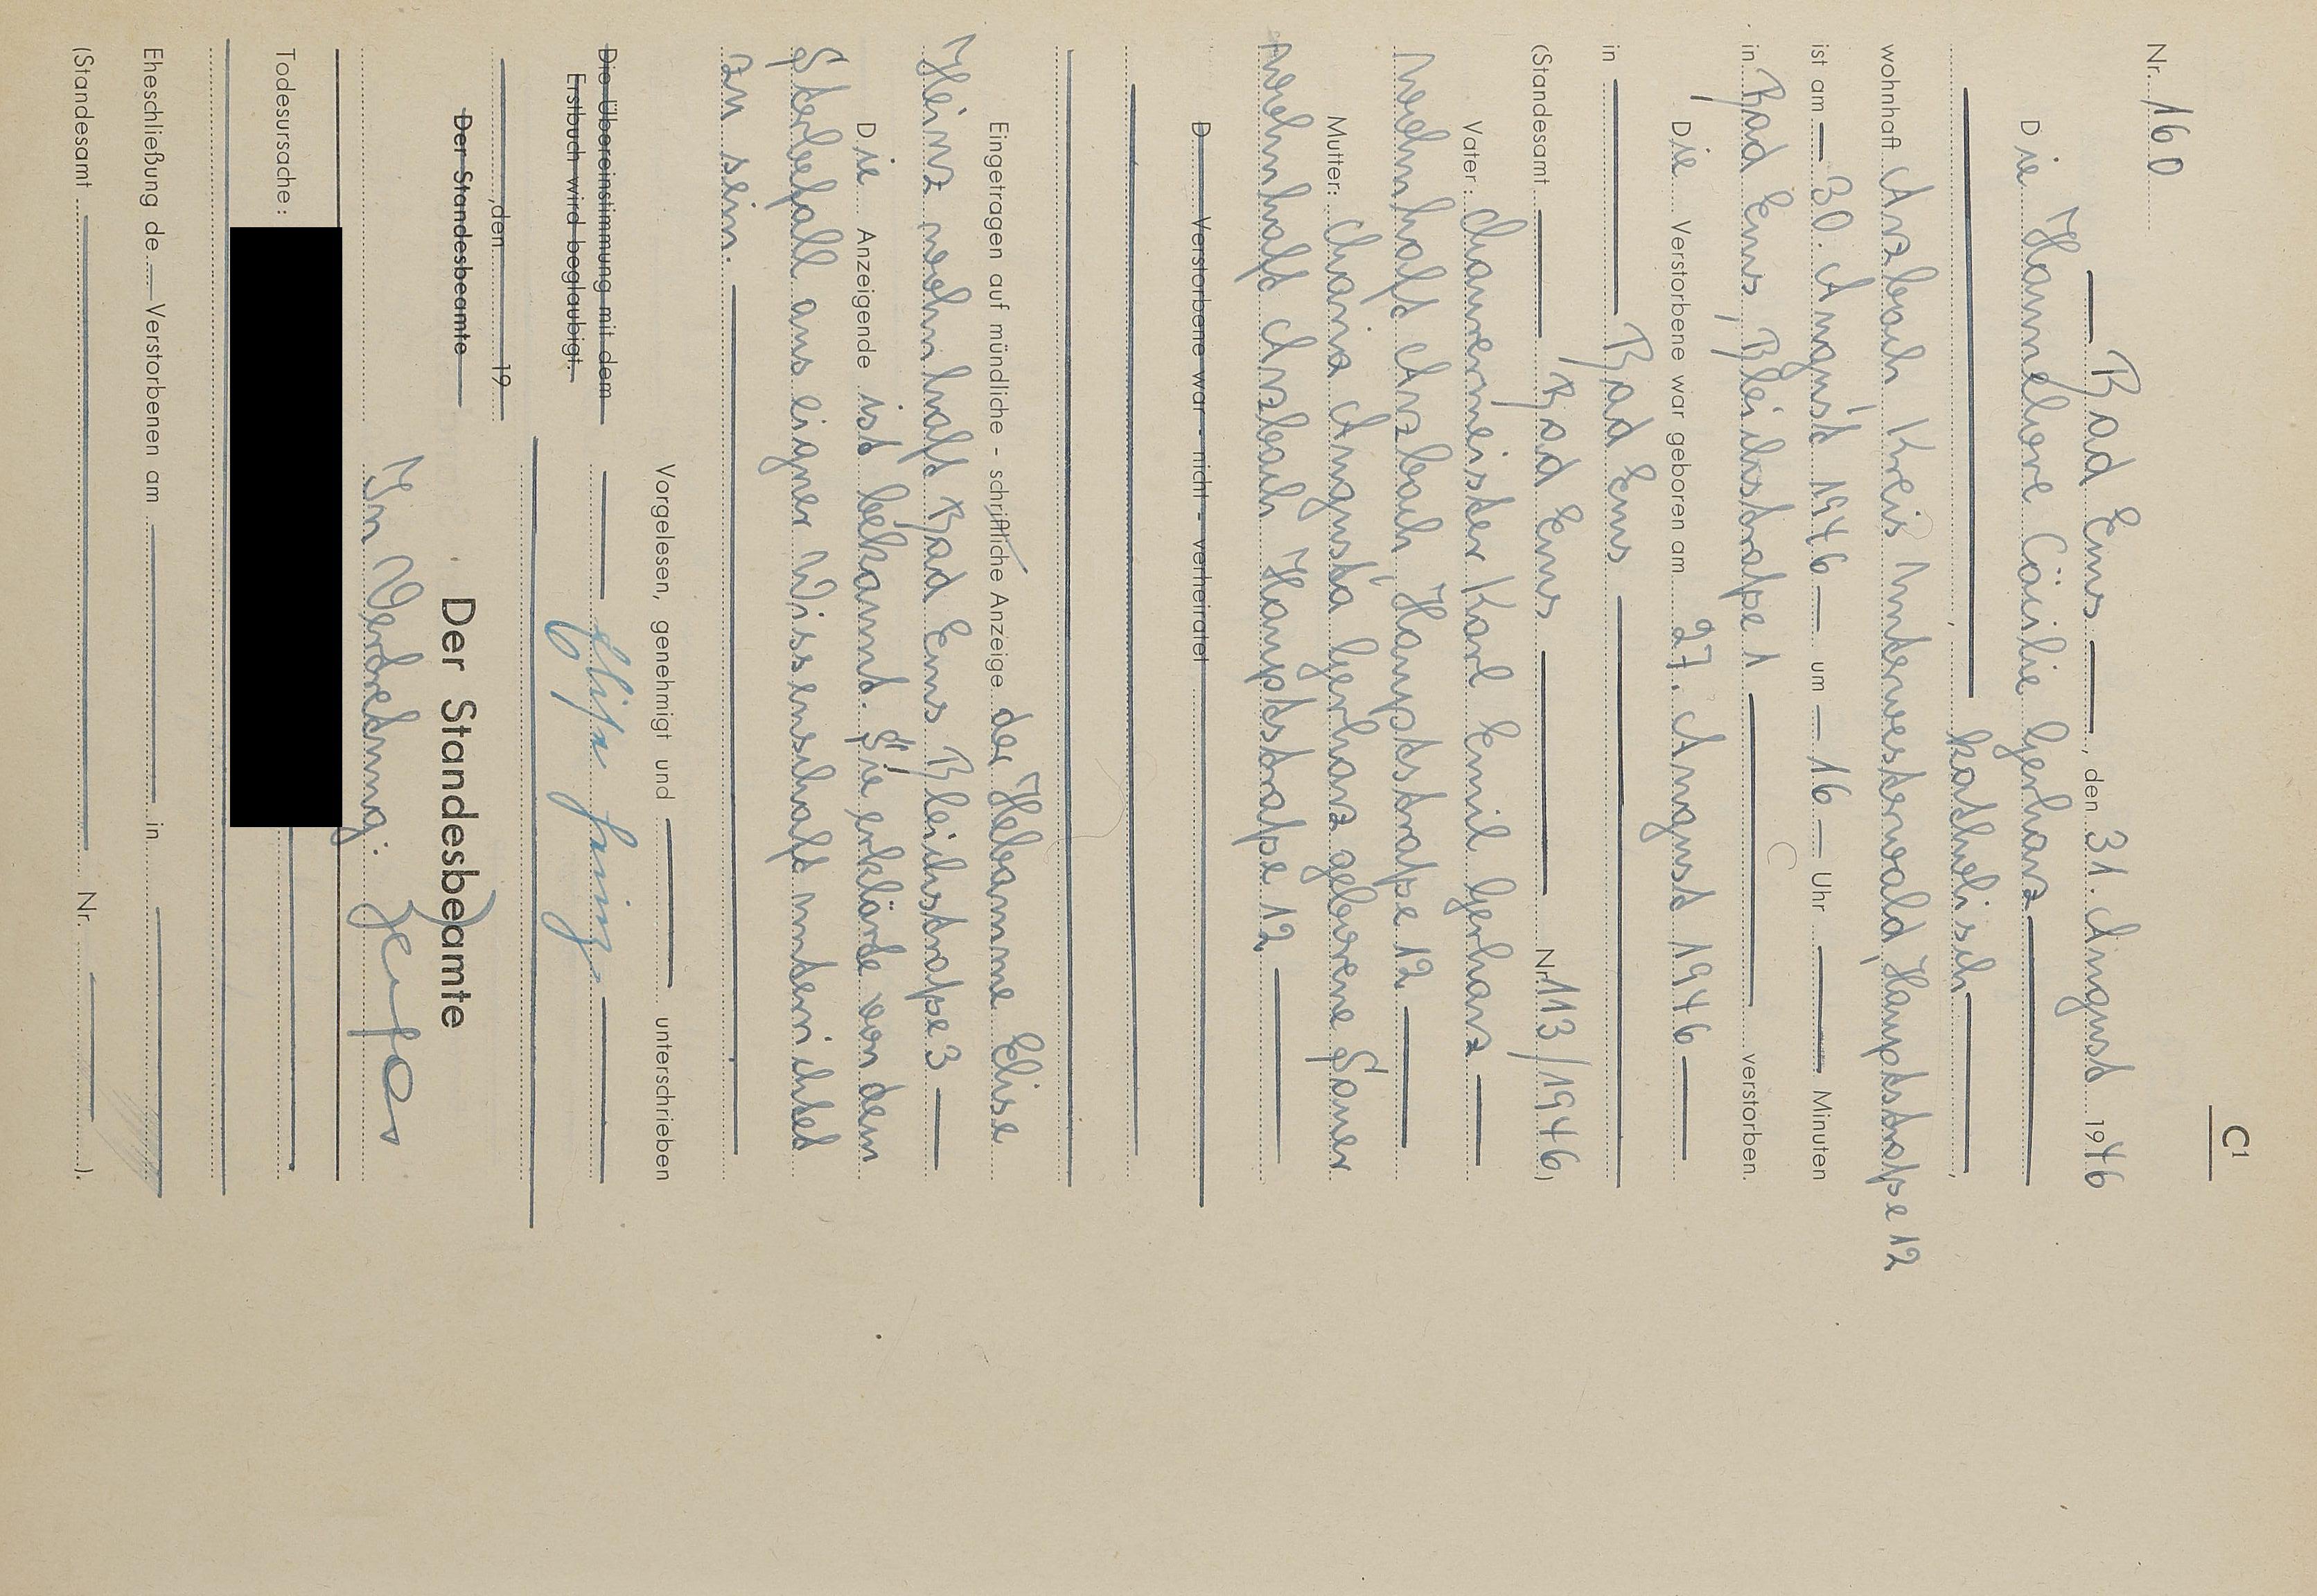 C1
Nr. 160
Bad Ems, den 31. August 1946
Die Hannelore Cäcilie Gerharz
, katholisch,
wohnhaft Arzbach Kreis Unterwesterwald, Hauptstraße 12
ist am 30. August 1946 um 16 Uhr Minuten
in Bad Ems, Bleichstraße 1 verstorben.
Die Verstorbene war geboren am 27. August 1946
in Bad Ems
(Standesamt Bad Ems Nr. 113/1946)
Vater: Maurermeister Karl Emil Gerharz
wohnhaft Arzbach, Hauptstraße 12
Mutter: Maria Augusta Gerharz geborene Sauer
wohnhaft Arzbach Hauptstraße 12
D Verstorbene war - nicht - verheiratet
Eingetragen auf mündliche - schriftliche Anzeige der Hebamme Elise
Heinz wohnhaft Bad Ems Bleichstraße 3
Die Anzeigende ist bekannt. Sie erklärte von dem
Sterbefall aus eigner Wissenschaft unterrichtet
zu sein.
Vorgelesen, genehmigt und unterschrieben
Die Übereinstimmung mit dem
Erstbuch wird beglaubigt.
Elise Heinz
, den 19
Der Standesbeamte
Der Standesbeamte
In Vertretung:
Todesursache:
Eheschließung de Verstorbenen am in
(Standesamt Nr. ).